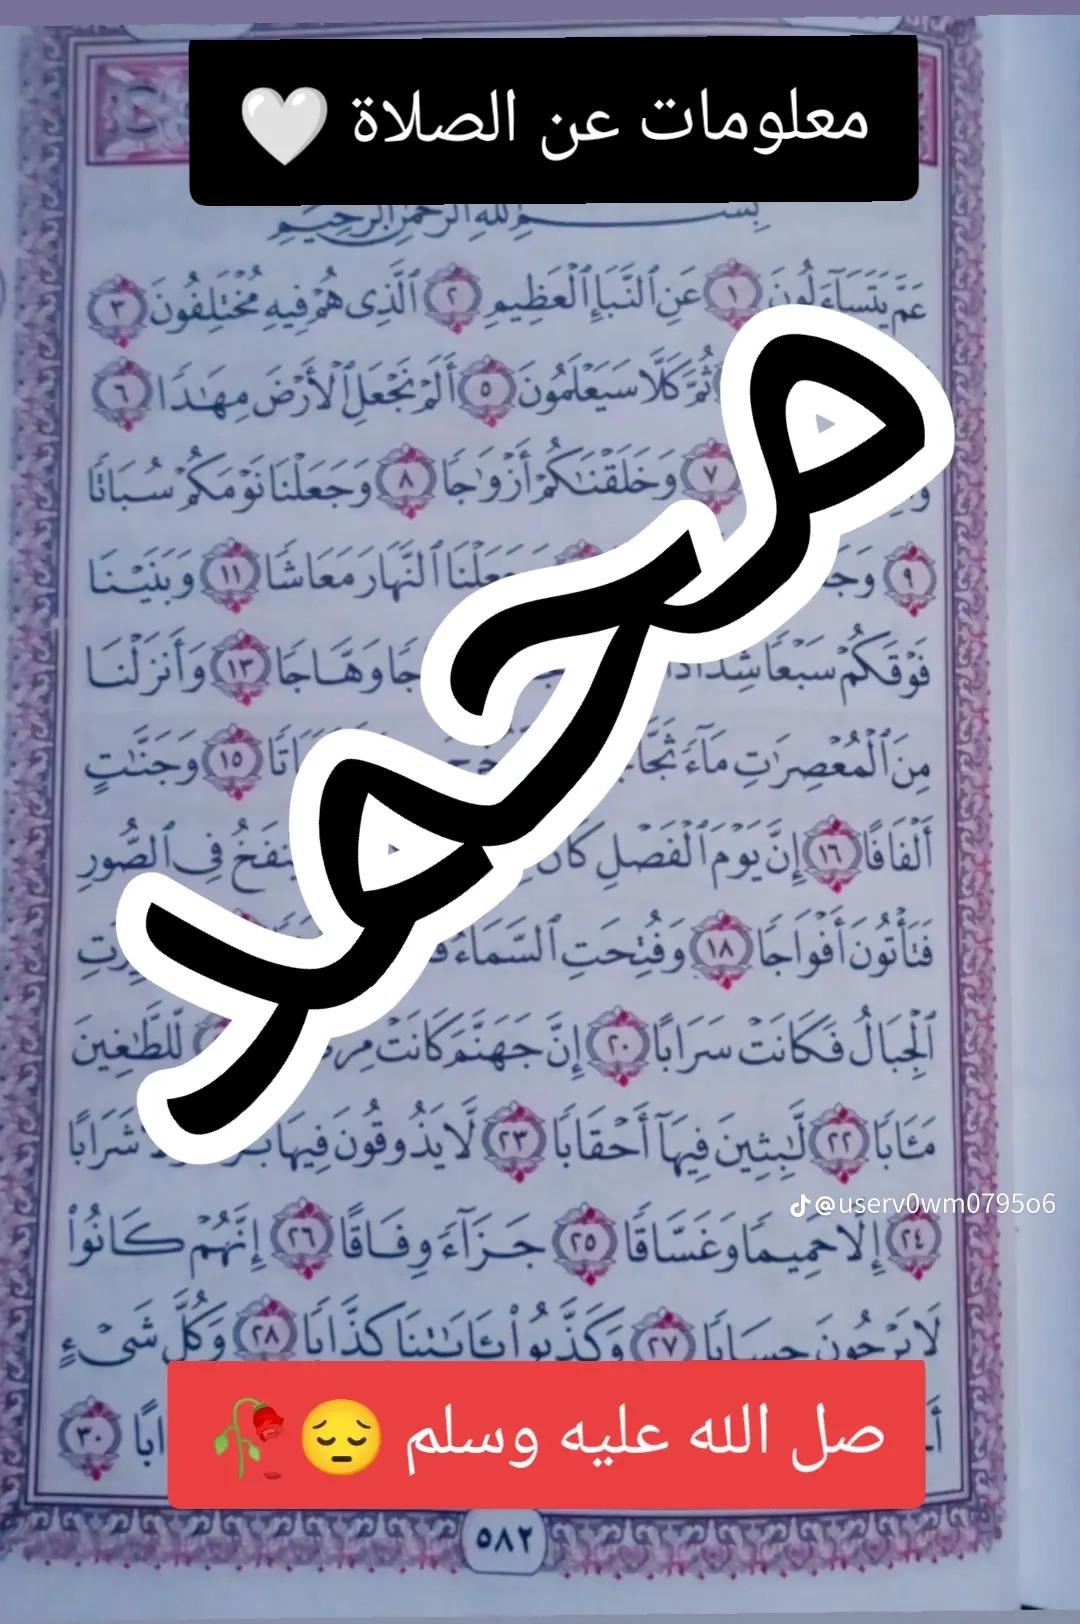 معلومات عن الصلاة 🤍
بِسْمِ ٱللَّهِ ٱلرَّحْمَٰنِ ٱلرَّحِيمِ
عَمَّ يَتَسَآءَلُونَ ١ عَنِ ٱلنَّبَإِ ٱلْعَظِيمِ ٢ ٱلَّذِى هُمْ فِيهِ مُخْتَلِفُونَ ٣
ثُمَّ كَلَّا سَيَعْلَمُونَ ٥ أَلَمْ نَجْعَلِ ٱلْأَرْضَ مِهَٰدًا ٦
٧ وَخَلَقْنَٰكُمْ أَزْوَٰجًا ٨ وَجَعَلْنَا نَوْمَكُمْ سُبَاتًا
٩ ٱلنَّهَارَ مَعَاشًا ١١ وَبَنَيْنَا
فَوْقَكُمْ سَبْعًا شِدَادًا وَهَّاجًا ١٣ وَأَنزَلْنَا
مِنَ ٱلْمُعْصِرَٰتِ مَآءً ١٥ وَجَنَّٰتٍ
أَلْفَافًا ١٦ إِنَّ يَوْمَ ٱلْفَصْلِ كَانَ يُنفَخُ فِى ٱلصُّورِ
فَتَأْتُونَ أَفْوَاجًا ١٨ وَفُتِحَتِ ٱلسَّمَآءُ
ٱلْجِبَالُ فَكَانَتْ سَرَابًا ٢٠ إِنَّ جَهَنَّمَ كَانَتْ لِّلطَّٰغِينَ
مَـَٔابًا ٢٢ لَّٰبِثِينَ فِيهَآ أَحْقَابًا ٢٣ لَّا يَذُوقُونَ فِيهَا شَرَابًا
٢٤ إِلَّا حَمِيمًا وَغَسَّاقًا ٢٥ جَزَآءً وِفَاقًا ٢٦ إِنَّهُمْ كَانُوا۟
لَا يَرْجُونَ حِسَابًا ٢٧ وَكَذَّبُوا۟ بِـَٔايَٰتِنَا كِذَّابًا ٢٨ وَكُلَّ شَىْءٍ
٣٠
محمد
@userv0wm0795o6
صل الله عليه وسلم 😔🥀
٥٨٢